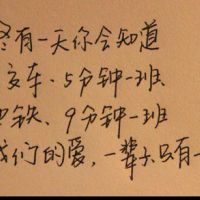 终有一天你会知道
公交车、5分钟一班
地铁、9分钟一班
我们的爱,一辈子只有一